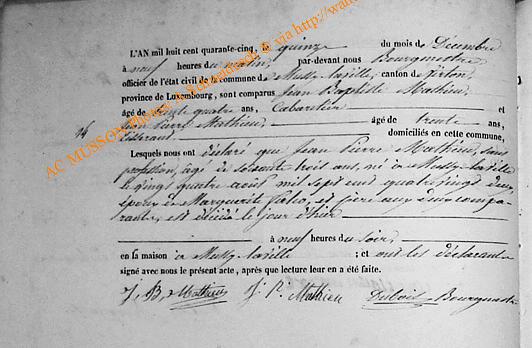 L'AN mil huit cent quarante-cinq, le quinze du mois de Décembre
à neuf heures du matin, par-devant nous Bourgmestre
officier de l'état civil de la commune de Mussy-la-ville, canton de Virton,
province de Luxembourg, sont comparus Jean Baptiste Mathieu,
âgé de trente quatre ans, Cabaretier et
Jean Pierre Mathieu, âgé de trente ans,
domiciliés en cette commune,
Lesquels nous ont déclaré que Jean Pierre Mathieu, sans
profession, âgé de soixante trois ans, né à Mussy-la-ville
le vingt quatre août mil sept cent quatre vingt deux,
époux de Marguerite et père aux compa-
rants, est décédé le jour d'hier
à neuf heures du soir,
en sa maison à Mussy-la-ville ; et ont les déclarants
signé avec nous le présent acte, après que lecture leur en a été faite.
J. B. Mathieu J. P. Mathieu Dubois Bourgmestre
16
AC MUSSON via http://